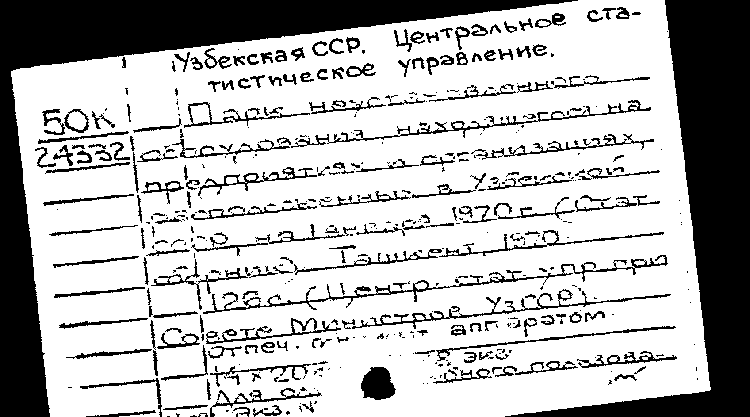 Узбекская ССР. Центральное ста-
тистическое управление.
50К
24332
Парк неустановленного
оборудования, находящегося на
предприятиях и организациях,
расположенных в Узбекской
ССР, на 1 января 1970 г. (Стат.
сборник). Ташкент, 1970.
126 с. (Центр. стат. упр. при
Совете Министров УзССР).
Отпеч. аппаратом.
14 × 20 экз.
Для пользова-
экз. №